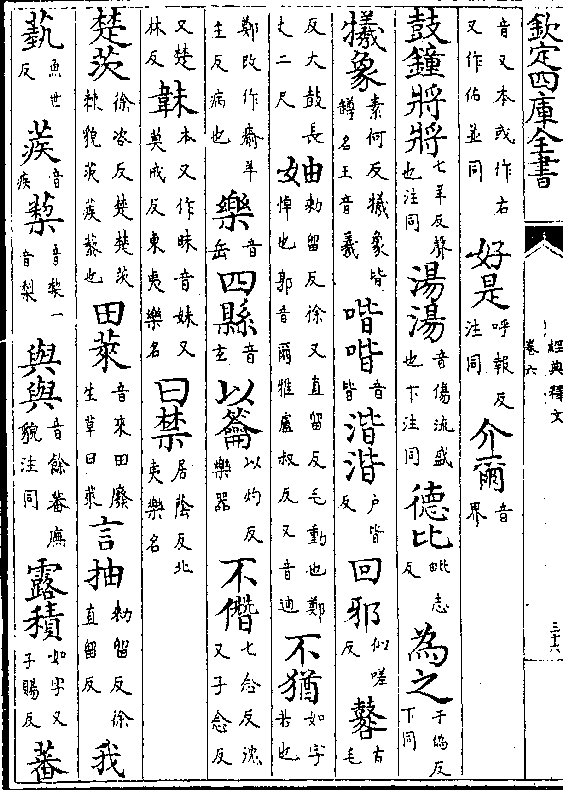 欽定四庫全書
經典釋文
卷六
三十六
音又本或作右又作佑並同 好是呼報反注同 介爾音界
鼓鐘將將七羊反聲也注同 湯湯音傷流盛也下注同 德比毗志反 為之于偽反下同
犧象素何反犧象皆罇名王音羲 喈喈音皆 湝湝户皆反 回邪似嗟反 鼛古毛
反大鼓長丈二尺 妯勑留反徐又直留反毛動也鄭悼也郭音爾雅盧叔反又音迪 不猶如字若也
鄭改作瘉羊主反病也 樂音岳 四縣音玄 以籥以灼反樂器 不僭七念反沈又子念反
又楚林反 韎本又作昧音妹又莫戒反東夷樂名 曰禁居蔭反北夷樂名
楚茨徐咨反楚楚茨棘貌茨蒺藜也 田萊音來田廢生草曰萊 言抽勑留反徐直留反 我
蓺魚世反 蒺音疾 蔾音犂一音梨 與與音餘蕃廡貌注同 露積如字又子賜反 蕃